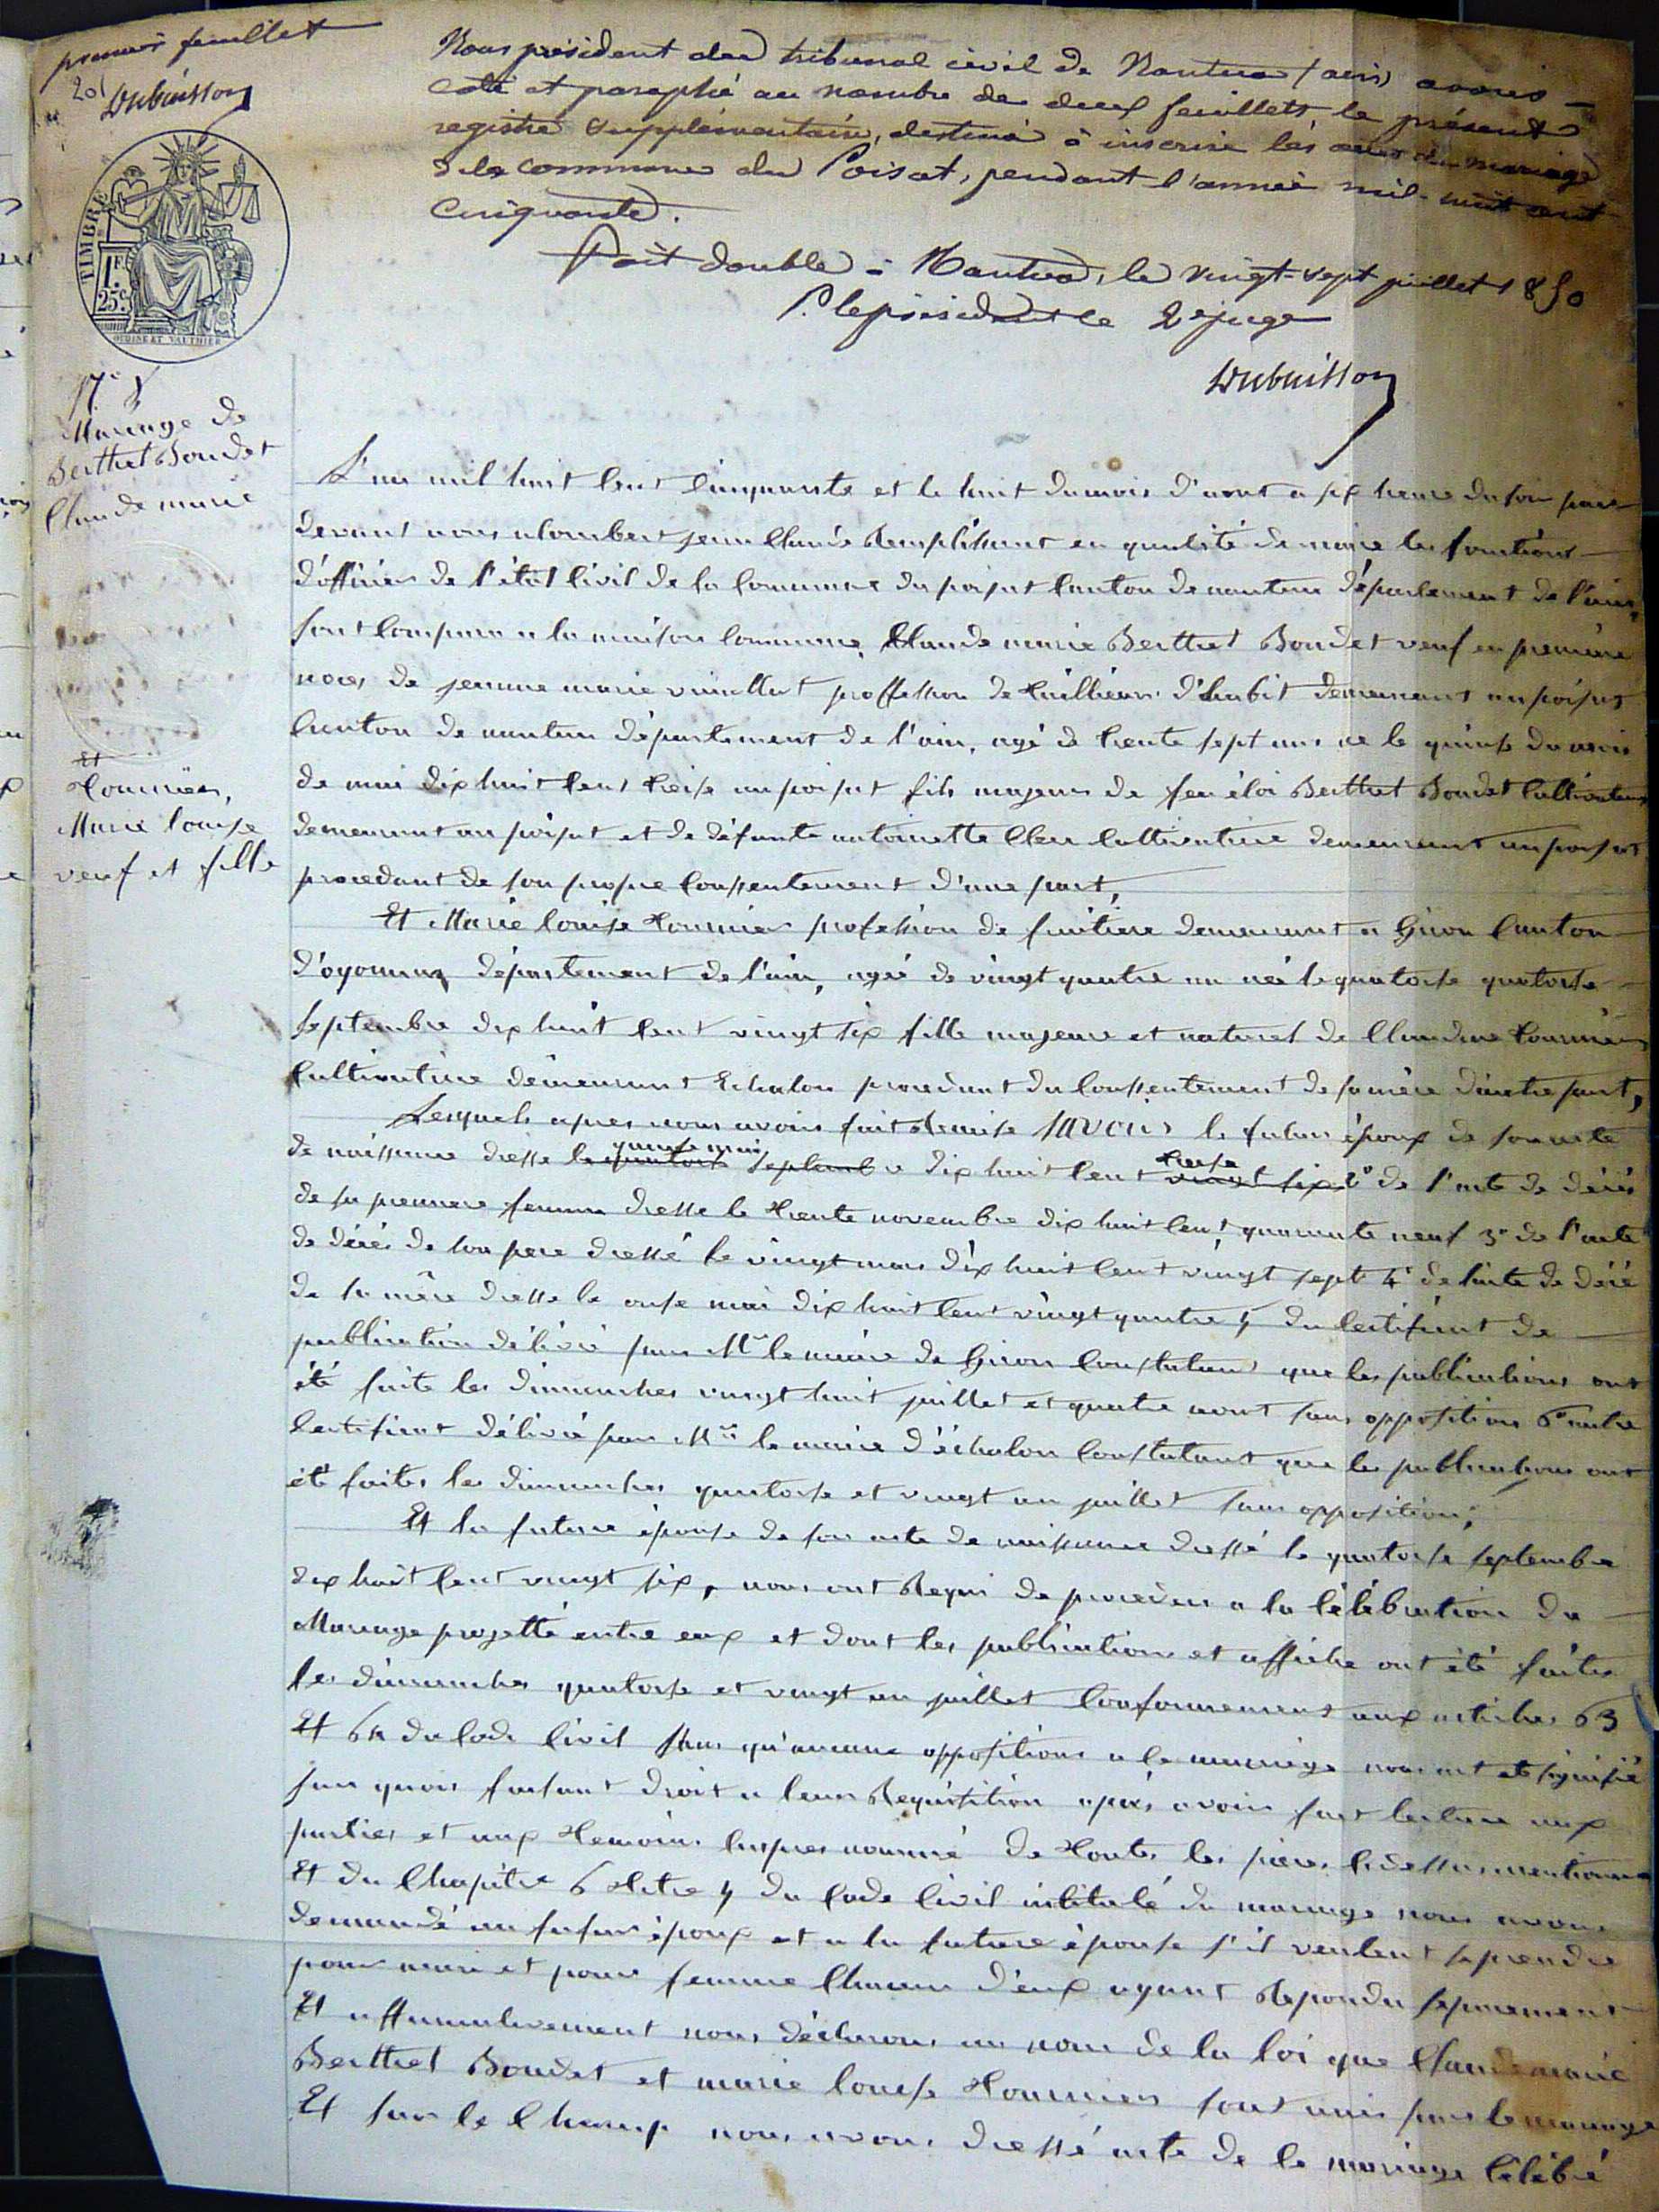 premier feuillet
201
Dubuisson
Nous président du tribunal civil de Nantua (ain) avons
coté et paraphé au nombre de deux feuillets, le présent
registre supplémentaire, destiné à inscrire les actes de mariage
de la commune du Poisat, pendant l'année mil-huit cent
cinquante.
Fait double à Nantua, le vingt-sept juillet 1850
P. le président le 2e juge
Dubuisson
TIMBRE
1F
25c
OUDINE ET VAUTHIER
N° 8
Mariage de
Berthet Boudet
Claude marie
et
Tournier,
Marie louise
veuf et fille
L'an mil huit Cent Cinquante et le huit du mois d'aout a six heure du soir par
devant nous alombert jean Claude Remplissant en qualité de maire les fonctions
d'officier de l'état Civil de la Commune du poisat Canton de nantua département de l'ain,
sont Comparu a la maison Commune, Claude marie Berthet Boudet veuf en première
noces de jeanne marie proffession de tailleur d'habit demeurant au poisat
Canton de nantua département de l'ain, agé de trente sept ans né le quinse du mois
de mai dix huit Cent treise au poisat fils majeur de feu éloi Berthet Boudet Cultivateur
demeurant au poisat et de défunte antoinette Cultivatrice demeurant au poisat
procedant de son propre Consentement d'une part,
Et Marie louise Tournier profession de fruitiere demeurant a Giron Canton
d'oyonnax département de l'ain, agée de vingt quatre an née le quatorse quatorse
septembre dix huit Cent vingt six fille majeure et naturel de Claudine tournier
Cultivatrice demeurant Echalon procedant du Consentement de sa mère d'autre part,
Lesquels apres nous avoir fait Remise savoir le futur époux de son acte
de naissance dresse le quatorse quinse mai septembre dix huit Cent vingt six treise 2° de l'acte de décés
de sa premiere femme dresse le trente novembre dix huit Cent quarante neuf 3° de l'acte
de décés de son pere dressé le vingt mars dix huit Cent vingt sept 4° de l'acte de décé
de sa mère dresse le onse mai dix huit Cent vingt quatre 5 du Certificat de
publication délivré par Mr le maire de Giron Constatant que les publications ont
été faite les dimanches vingt huit juillet et quatre aout sans opposition 6° autre
Certificat délivré par Mr le maire d'échalon Constatant que les publications ont
été faites les dimanches quatorse et vingt un juillet sans opposition;
Et la future épouse de son acte de naissance dressé le quatorse septembre
dix huit Cent vingt six, nous ont Requi de proceder a la Célébration du
Mariage projetté entre eux et dont les publications et affiche ont été faites
les dimanches quatorse et vingt un juillet Conformement aux articles 63
Et 64 du Code Civil sans qu'aucune oppositions a ce mariage nous ait été signifié
sur quoi faisant droit a leur Requisition aprés avoir fait lecture aux
parties et aux temoins Ci apres nommé de toutes les pieces Cidessus mentionné
Et du Chapitre 6 titre 5 du Code Civil intitulé du mariage nous avons
demandé au futur époux et a la future épouse s'il veulent se prendre
pour mari et pour femme Chacun d'eux ayant Repondu separement
Et affirmativement nous déclarons au nom de la loi que Claude marie
Berthet Boudet et marie louise Tournier sont unis par le mariage
Et sur le Champ nous avons dressé acte de ce mariage Célébré